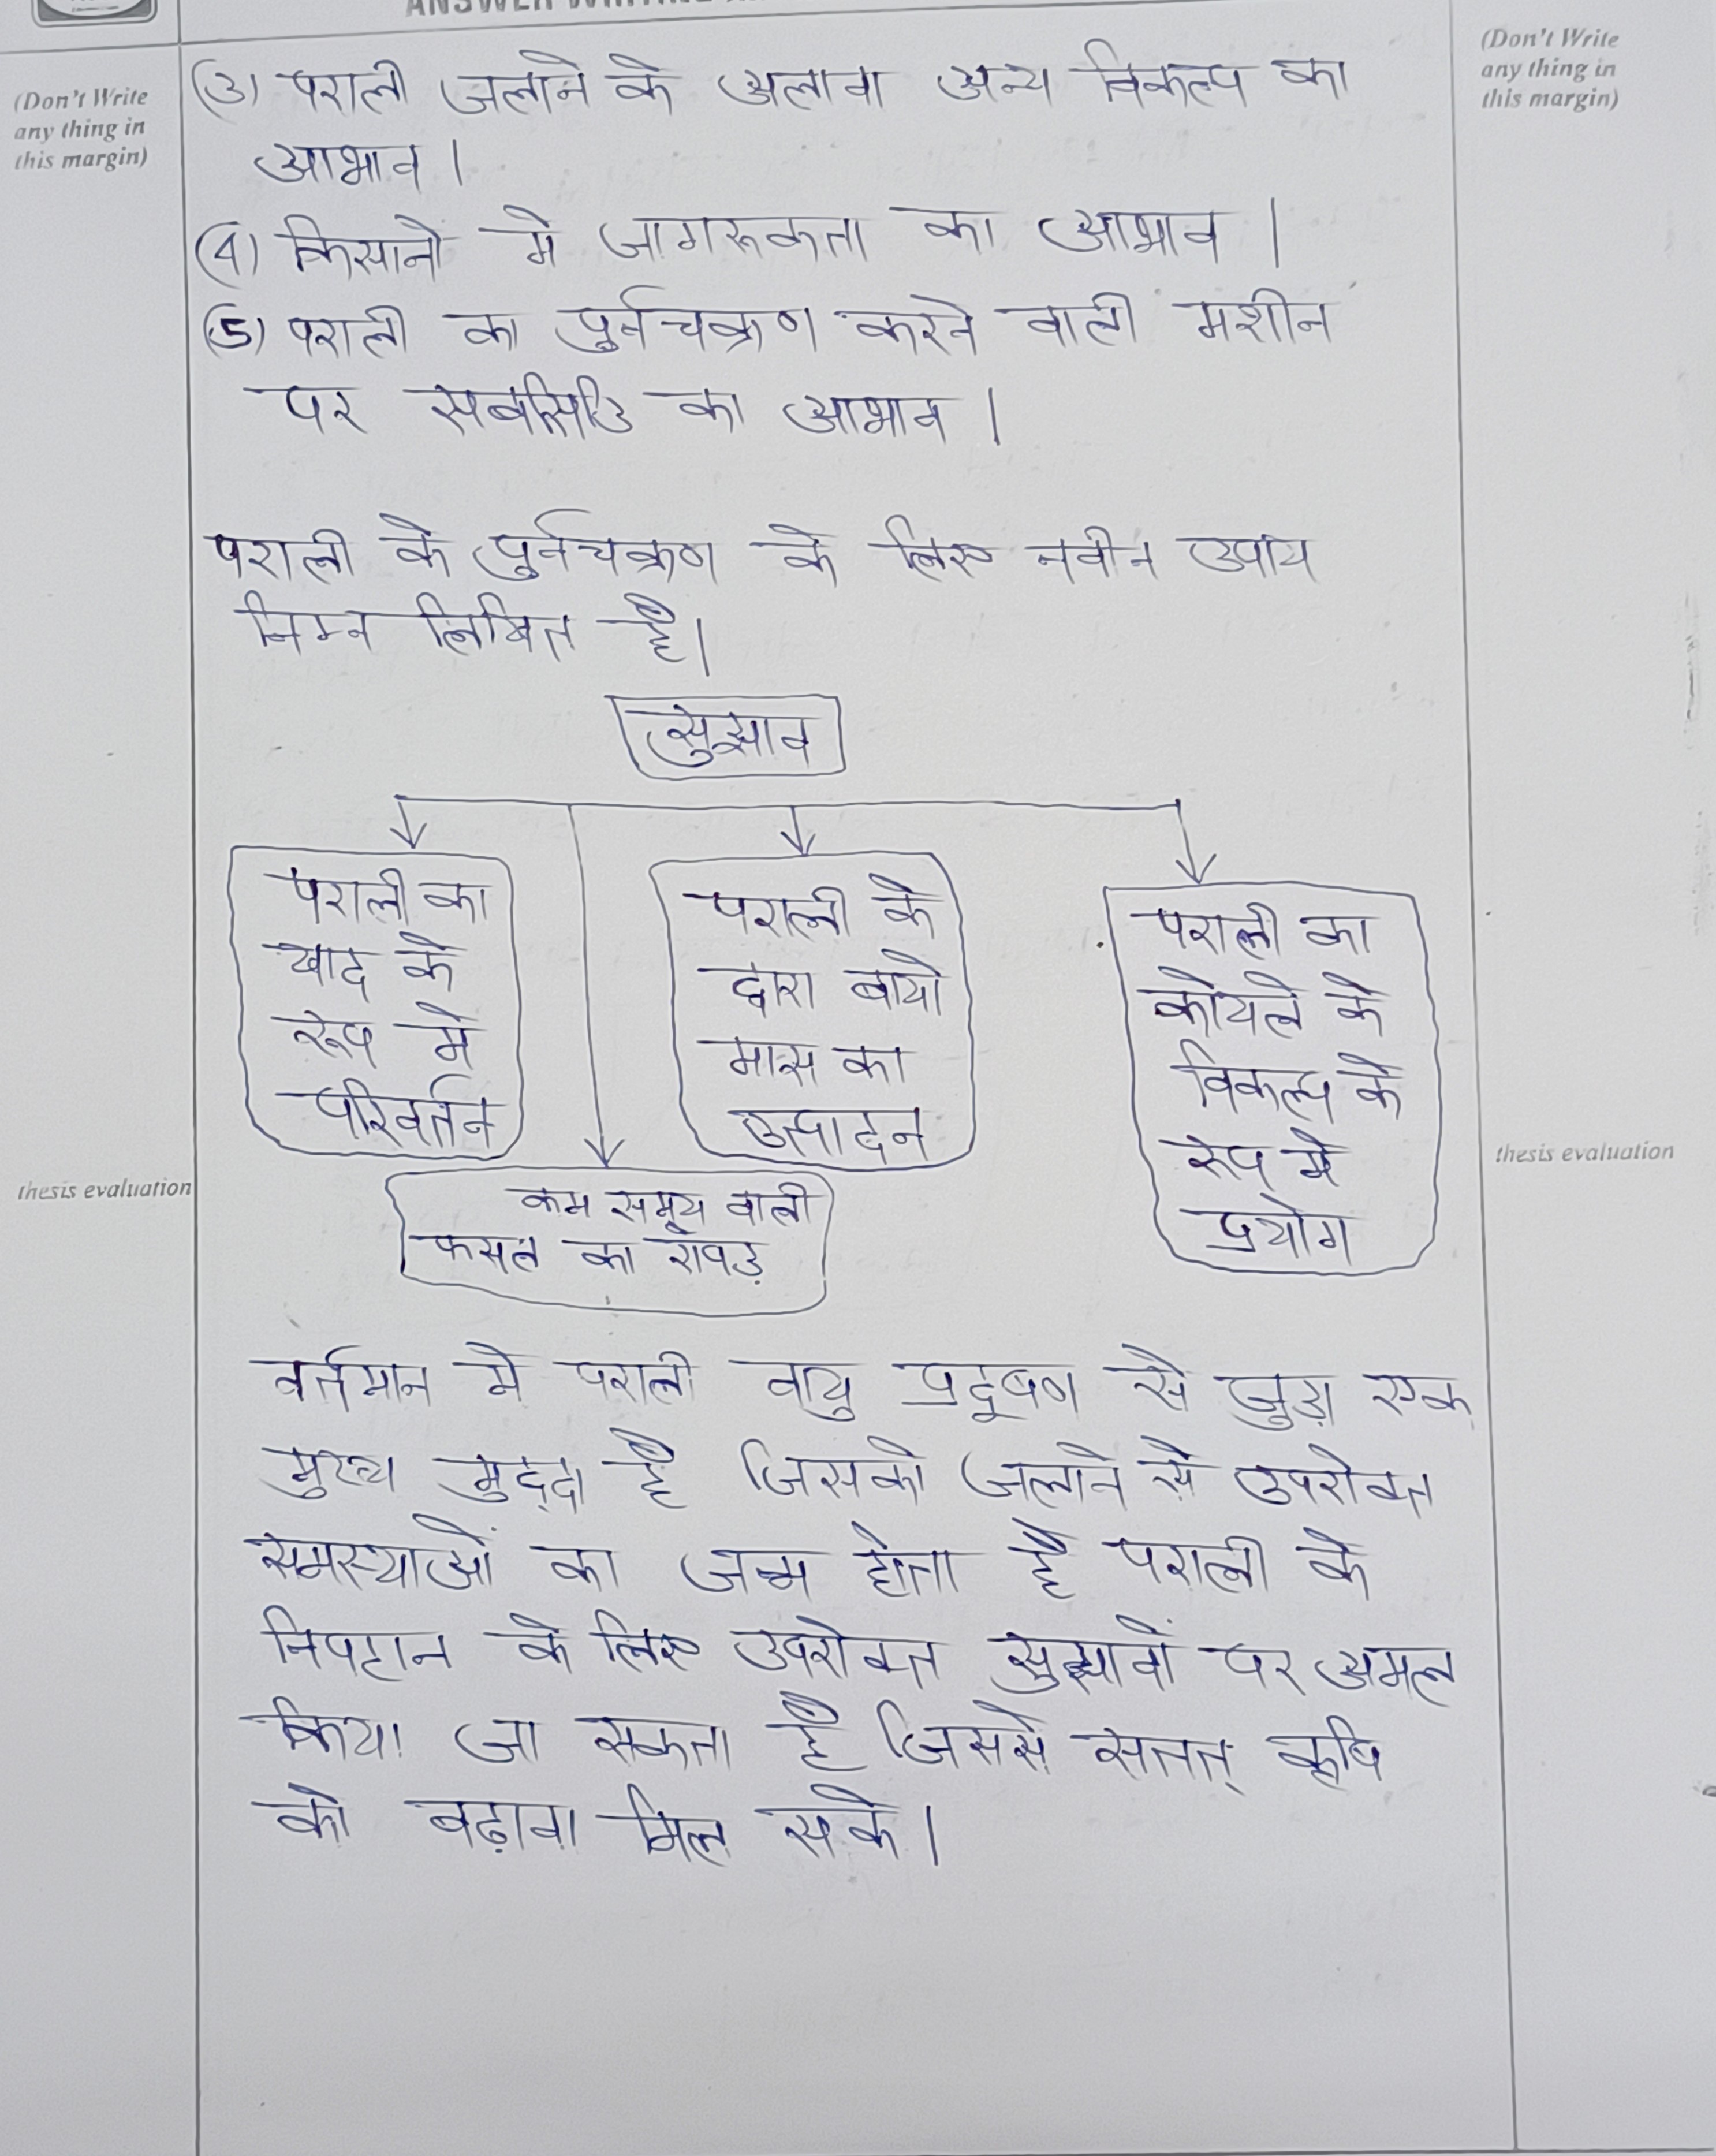 ANSWER WRITING
(Don't Write
any thing in
this margin)
(Don't Write
any thing in
this margin)
(3) पराली जलाने के अलावा अन्य विकल्प का
आभाव।
(4) किसानो मे जागरूकता का आभाव।
(5) पराली का पुर्नचक्रण करने वाली मशीन
पर सबसिडि का आभाव।
पराली के पुर्नचक्रण के लिए नवीन उपाय
निम्न लिखित है।
सुझाव
पराली का
खाद के
रूप मे
परिवर्तन
पराली के
द्वारा बायो
मास का
उत्पादन
पराली का
कोयले के
विकल्प के
रूप मे
प्रयोग
कम समय वाली
फसल का
thesis evaluation
thesis evaluation
वर्तमान मे पराली वायु प्रदूषण से जुड़ा एक
मुख्य मुद्दा है जिसको जलाने से उपरोक्त
समस्याओं का जन्म होता है पराली के
निपटान के लिए उपरोक्त सुझावों पर अमल
किया जा सकता है जिससे सतत् कृषि
को बढ़ावा मिल सके।